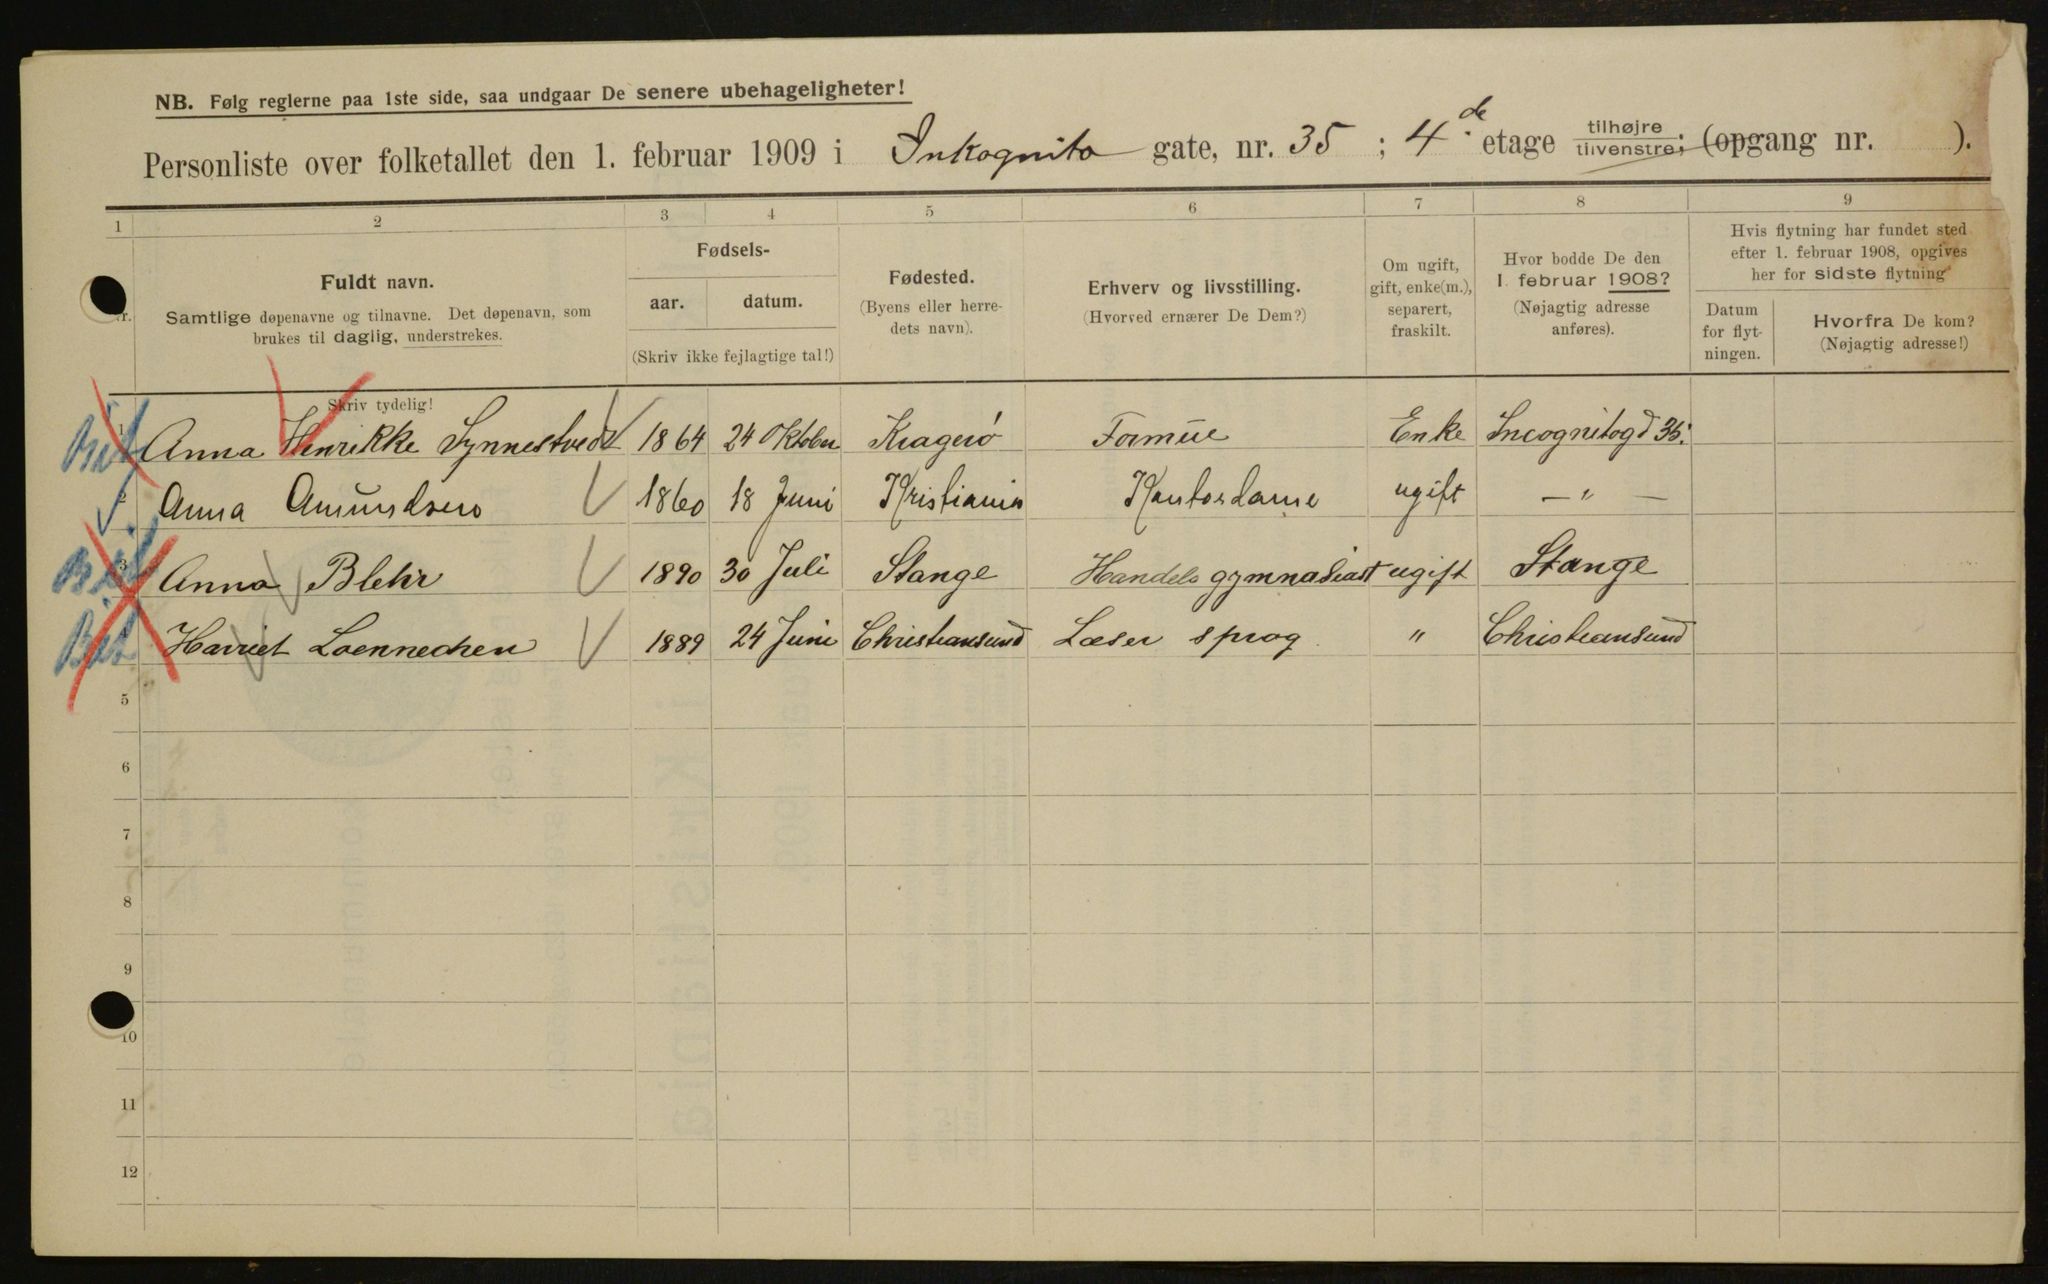 NB. Følg reglerne paa 1ste side, saa undgaar De senere ubehageligheter!
Personliste over folketallet den 1. februar 1909 i Inkognito gate, nr. 35 ; 4de etage tilhøjre tilvenstre; (opgang nr. ).
1 2 3 4 5 6 7 8 9
Fuldt navn.
Samtlige døpenavne og tilnavne. Det døpenavn, som
brukes til daglig, understrekes.
Skriv tydelig!
Fødsels-
aar. datum.
(Skriv ikke fejlagtige tal!)
Fødested.
(Byens eller herre-
dets navn).
Erhverv og livsstilling.
(Hvorved ernærer De Dem?)
Om ugift,
gift, enke(m.),
separert,
fraskilt.
Hvor bodde De den
1. februar 1908?
(Nøjagtig adresse
anføres).
Hvis flytning har fundet sted
efter 1. februar 1908, opgives
her for sidste flytning
Datum
for flyt-
ningen.
Hvorfra De kom?
(Nøjagtig adresse!)
1 Anna Henrikke Synnestvedt 1864 24 Oktober Kragerø Formue Enke Incognitogd 35.
2 Anna Amundsen 1860 18 Juni Kristiania Kontordame ugift — „ —
3 Anna Blehr 1890 30 Juli Stange Handelsgymnasiast ugift Stange
Harriet Loennechen 1889 24 Juni Christiansund Læser sprog „ Christiansund
5
6
7
8
9
10
11
12